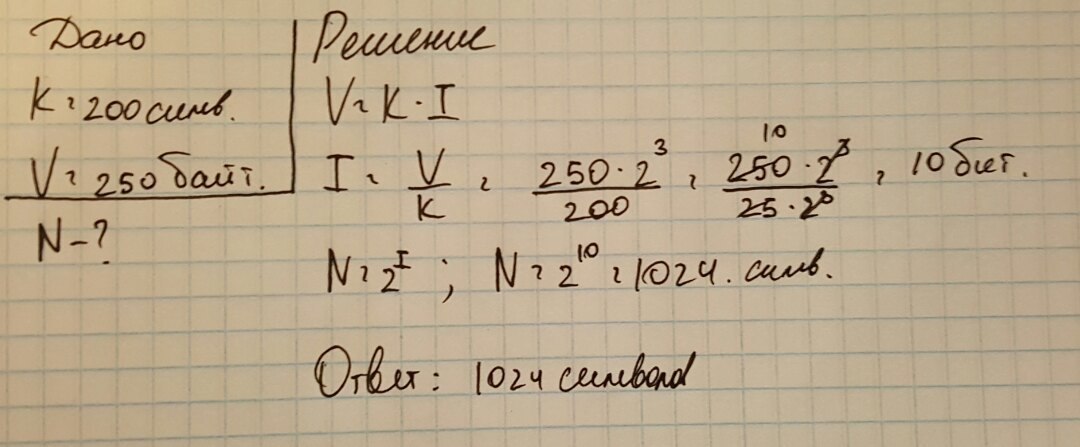 Дано
K = 200 симв.
V = 250 байт.
N - ?
Решение
V = K · I
I = V/K = 250 · 2³/200 = 250 · 2³/25 · 2³ = 10 бит.
10
N = 2^I ; N = 2¹⁰ = 1024 . симв.
Ответ: 1024 символа